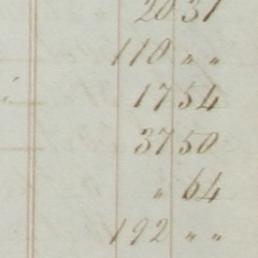 20 31
110 " "
17 54
37 50
" 64
192 " "